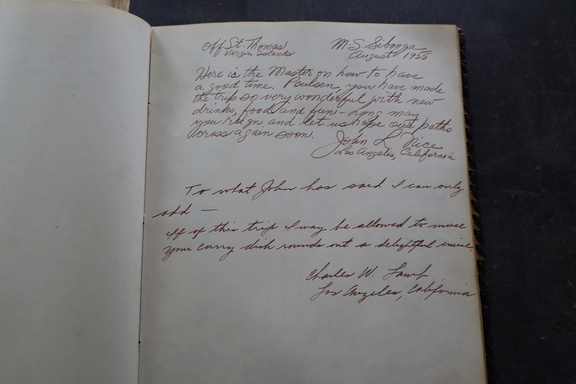 Off St. Thomas
Virgin Islands
M.S. Sibonga
August 1955
Here is the Master on how to have
a good time. Paulsen, you have made
the trip so very wonderful with new
drinks, food and fun - long may
you reign and let us hope our paths
across again soon.
John L. Vice
Los Angeles, California
To what John has said I can only
add —
If of this trip I may be allowed to muse
your curry dish rounds out a delightful
Charles W. Lamb
Los Angeles, California